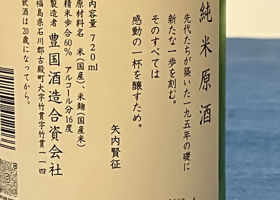 純米原酒
先代たちが築いた一九五年の礎に
新たな一歩を刻む。
そのすべては
感動の一杯を醸すため。
矢内賢征
内容量 720ml
原材料名 米（国産）、米麹（国産米）
精米歩合60% アルコール分16度
製造者 豊国酒造合資会社
福島県石川郡古殿町大字竹貫字竹貫一一四
飲酒は20歳になってから。